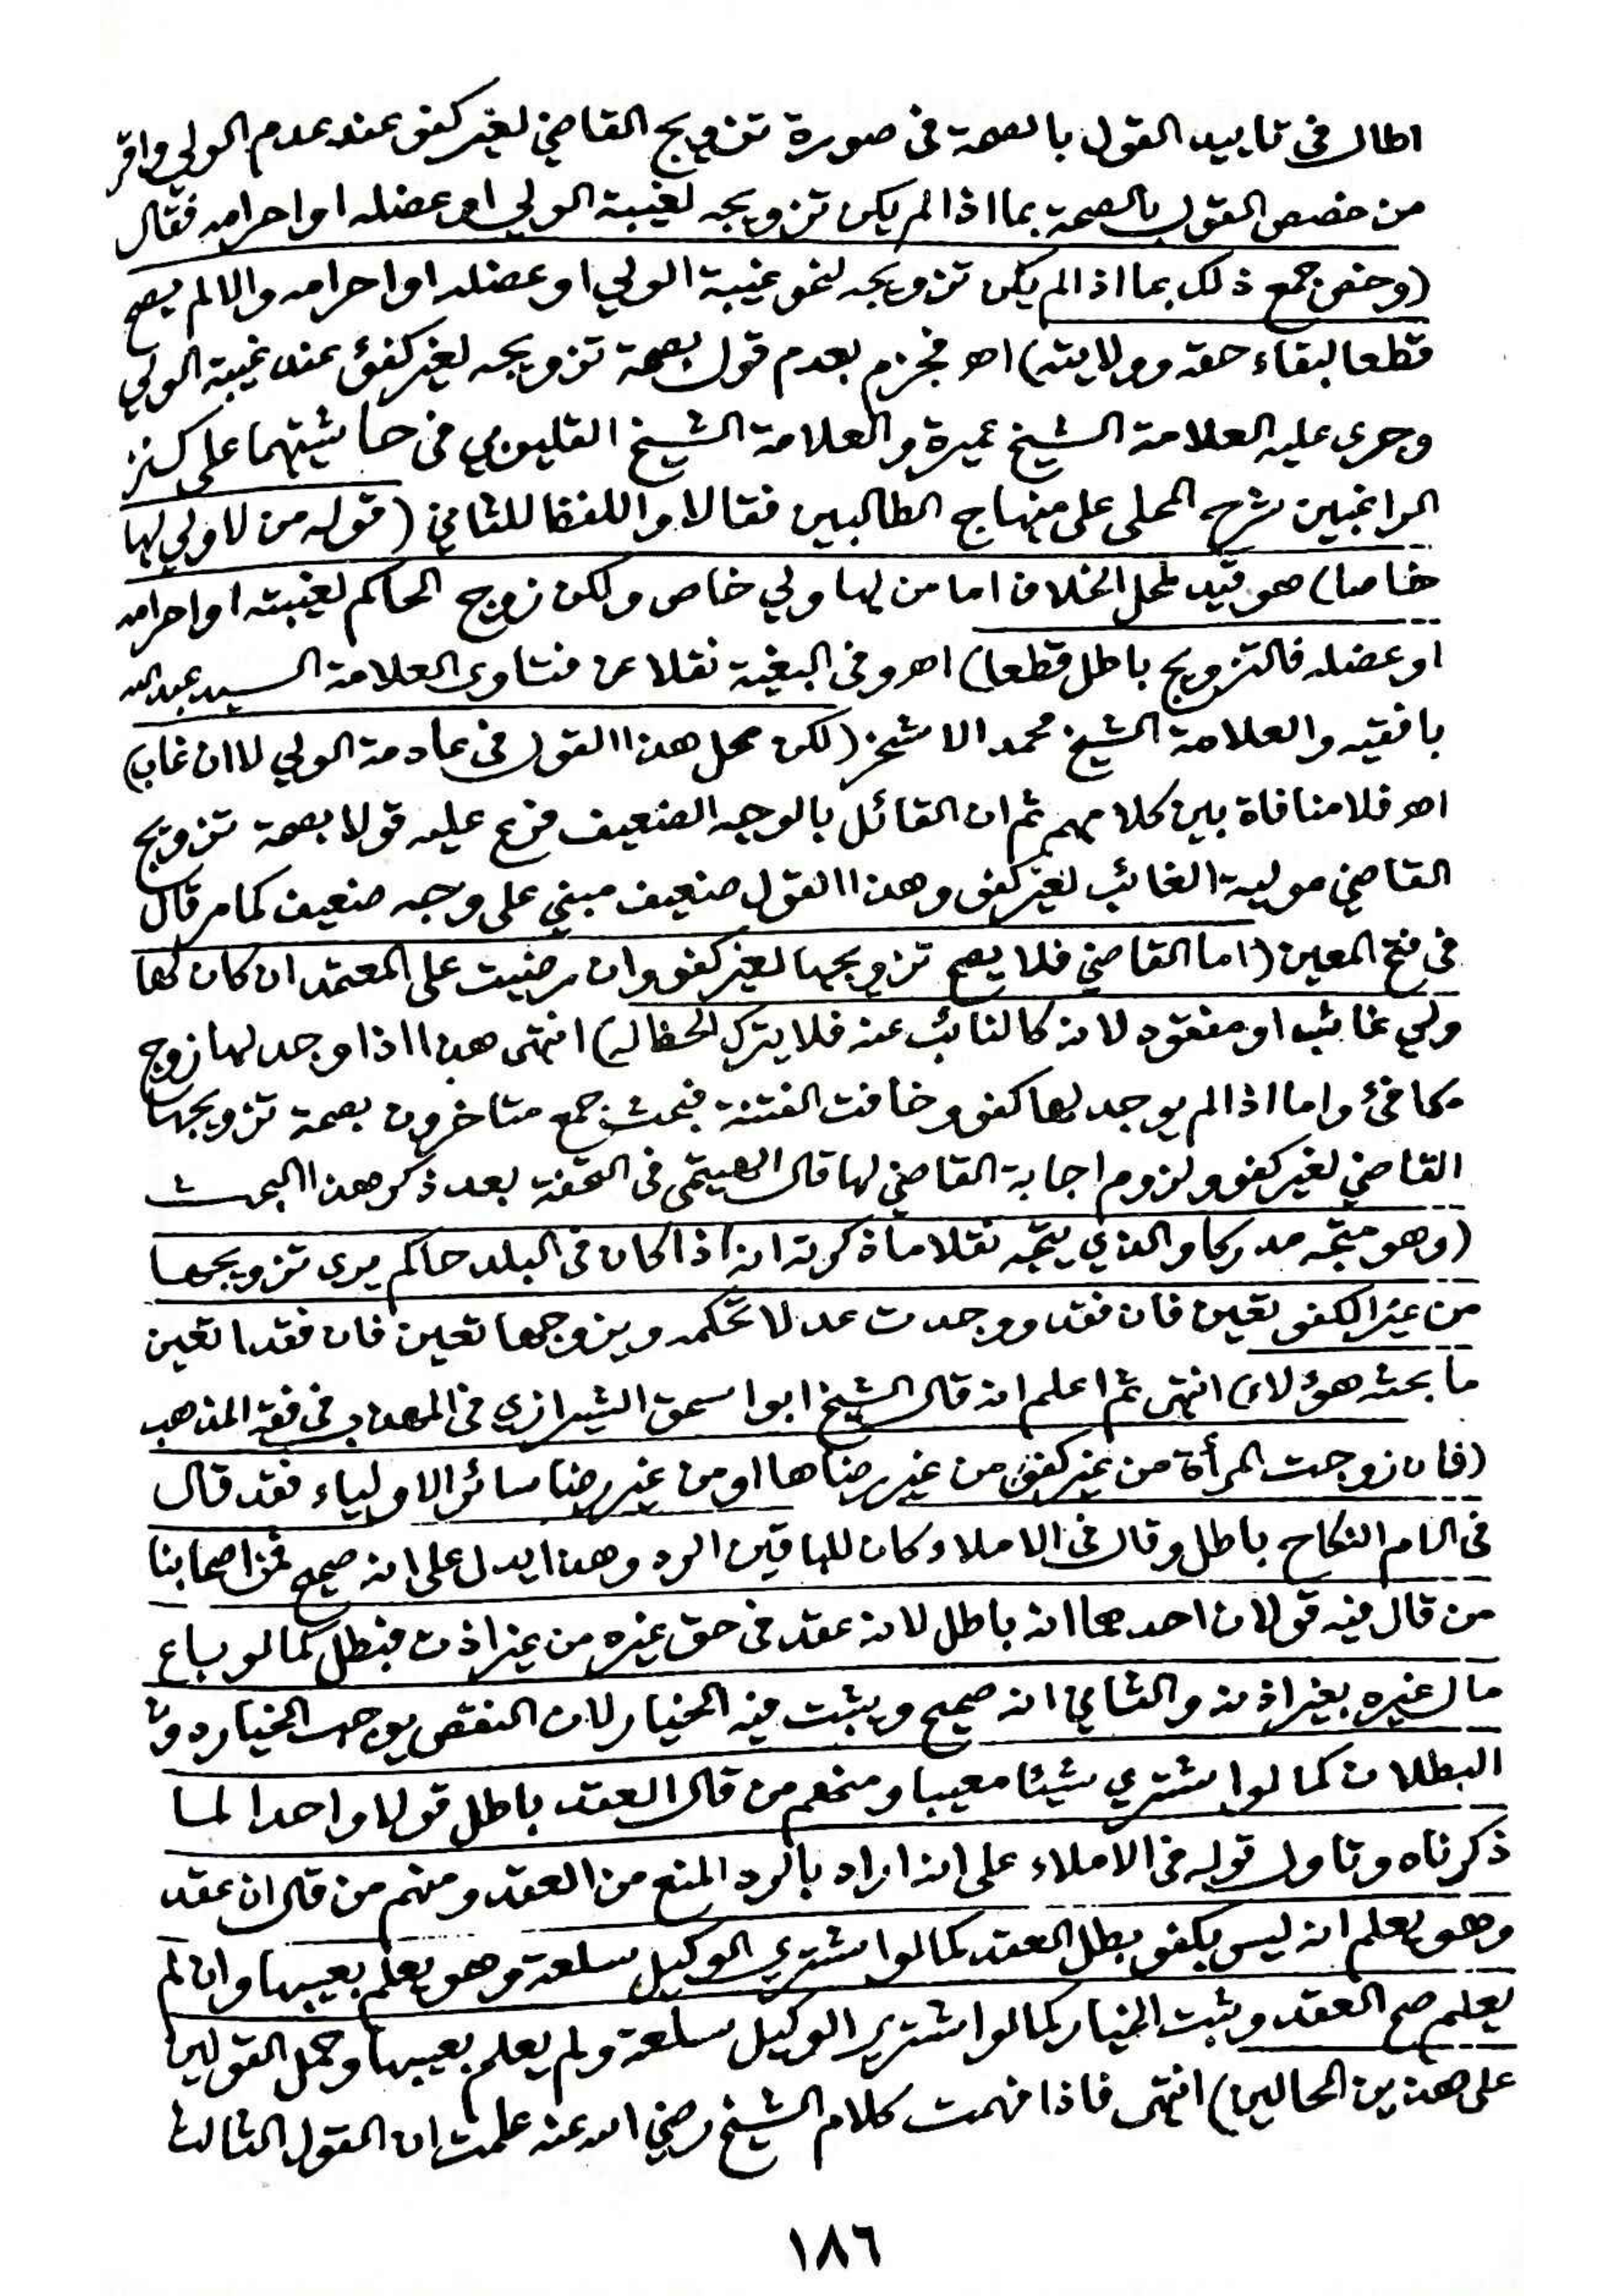 اطال فى تاييد القول بالصحة فى صورة تزويج القاضي لغير كفؤ عند عدم الولي واقر
من خصص القول بالصحة بما اذا لم يكن تزويجه لغيبة الولي او عضله او احرامه فقال
(وخص جمع ذلك بما اذا لم يكن تزويجه لنحو غيبة الولي او عضله او احرامه والا لم يصح
قطعا لبقاء حقه وولايته) اهـ فجزم بعدم قول بصحة تزويجه لغير كفئ عند غيبة الولي
وجرى عليه العلامة الشيخ عميرة والعلامة الشيخ القليوبي فى حاشيتهما على كنز
الراغبين شرح المحلى على منهاج الطالبين فقالا واللفظ للثاني (قوله من لا ولي لها
خاصا) هو قيد لمحل الخلاف اما من لها ولي خاص ولكن زوج الحاكم لغيبته او احرامه
او عضله فالتزويج باطل قطعا) اهـ وفى البغية نقلا عن فتاوى العلامة السيد عبدالله
بافقيه والعلامة الشيخ محمد الاشخر (لكن محل هذا القول فى عادمة الولي لا ان غاب)
اهـ فلا منافاة بين كلامهم ثم ان القائل بالوجه الضعيف فرع عليه قولا بصحة تزويج
القاضي مولية الغائب لغير كفؤ وهذا القول ضعيف مبني على وجه ضعيف كما مر قال
فى فتح المعين (اما القاضي فلا يصح تزويجها لغير كفؤ وان رضيت على المعتمد ان كان لها
ولي غائب او مفقود لانه كالنائب عنه فلا يترك الحظ له) انتهى هذا اذا وجد لها زوج
مكافئ واما اذا لم يوجد لها كفؤ وخافت الفتنة فبحث جمع متاخرون بصحة تزويجها
القاضي لغير كفؤ ولزوم اجابة القاضي لها قال الهيتمى فى التحفة بعد ذكر هذا البحث
(وهو متجه مدركا والذي يتجه نقلا ما ذكرته انه اذا كان فى البلد حاكم يرى تزويجها
من غير الكفؤ تعين فان فقد ووجدت عدلا تحكمه ويزوجها تعين فان فقدا تعين
ما بحثه هؤلاء) انتهى ثم اعلم انه قال الشيخ ابو اسحق الشيرازي فى المهذب فى فقه المذهب
(فان زوجت المرأة من غير كفؤ من غير رضاها او من غير رضا سائر الاولياء فقد قال
فى الام النكاح باطل وقال فى الاملاء وكان للباقين الرد وهذا يدل على انه صحيح فمن اصحابنا
من قال فيه قولان احدهما انه باطل لانه عقد فى حق غيره من غير اذن فبطل كما لو باع
مال غيره بغير اذنه والثاني انه صحيح ويثبت فيه الخيار لان النقص يوجب الخيار دون
البطلان كما لو اشتري شيئا معيبا ومنهم من قال العقد باطل قولا واحدا لما
ذكرناه وتاول قوله فى الاملاء على انه اراد بالرد المنع من العقد ومنهم من قال ان عقد
وهو يعلم انه ليس بكفؤ بطل العقد كما لو اشتري الوكيل سلعة وهو يعلم بعيبها وان لم
يعلم صح العقد وثبت الخيار كما لو اشترى الوكيل سلعة ولم يعلم بعيبها وحمل القولين
على هذين الحالين) انتهى فاذا فهمت كلام الشيخ رضي الله عنه علمت ان القول الثالث
١٨٦